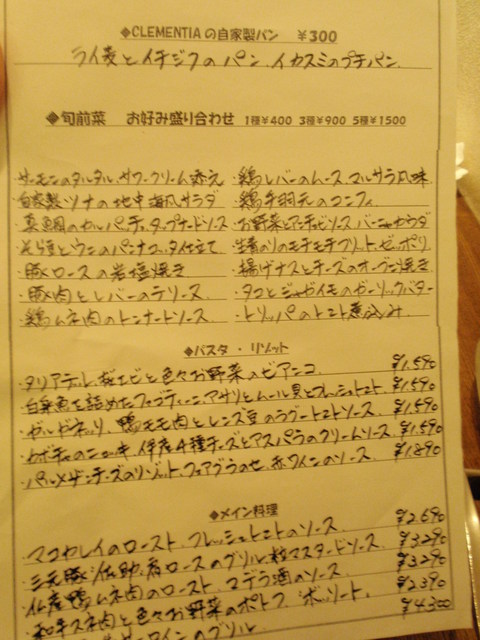 ◆CLEMENTIAの自家製パン ¥300
ライ麦とイチジクのパン、イカスミのプチパン
◆旬前菜 お好み盛り合わせ 1種¥400 3種¥900 5種¥1500
・サーモンのタルタル、サワークリーム添え
・自家製ツナの地中海風サラダ
・真鯛のカルパッチョ、タップナードソース
・そら豆とウニのパンナコッタ仕立て
・豚ロースの岩塩焼き
・豚肉とレバーのテリーヌ
・鶏ムネ肉のトンナートソース
・鶏レバーのムース、マルサラ風味
・鶏手羽元のコンフィ
・お野菜とアンチョビソース バーニャカウダ
・生青のりのモチモチフリット、ゼッポリ
・揚げナスとチーズのオーブン焼き
・タコとジャガイモのガーリックバター
・トリッパのトマト煮込み
◆パスタ・リゾット
・タリアテッレ、桜エビと色々お野菜のビアンコ ¥1,590
・白身魚を詰めたアサリとムール貝とフレッシュトマト ¥1,590
・ガルガネッリ、鴨モモ肉とレンズ豆のラグートマトソース ¥1,590
・カボチャのニョッキ、伊産4種チーズとアスパラのクリームソース ¥1,590
・パルメザンチーズのリゾット、フォアグラのせ、赤ワインのソース ¥1890
◆メイン料理
・マコガレイのロースト、フレッシュトマトのソース ¥2,690
・三元豚 肩ロースのグリル 粒マスタードソース ¥3,290
・仏産鴨ムネ肉のロースト マデラ酒のソース ¥3,290
・和牛スネ肉と色々お野菜のポトフ、ボッリート ¥2,390
ロインのグリル ¥4,300